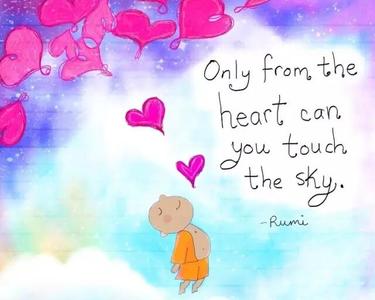 Only from the
heart can
you touch
the sky.
-Rumi